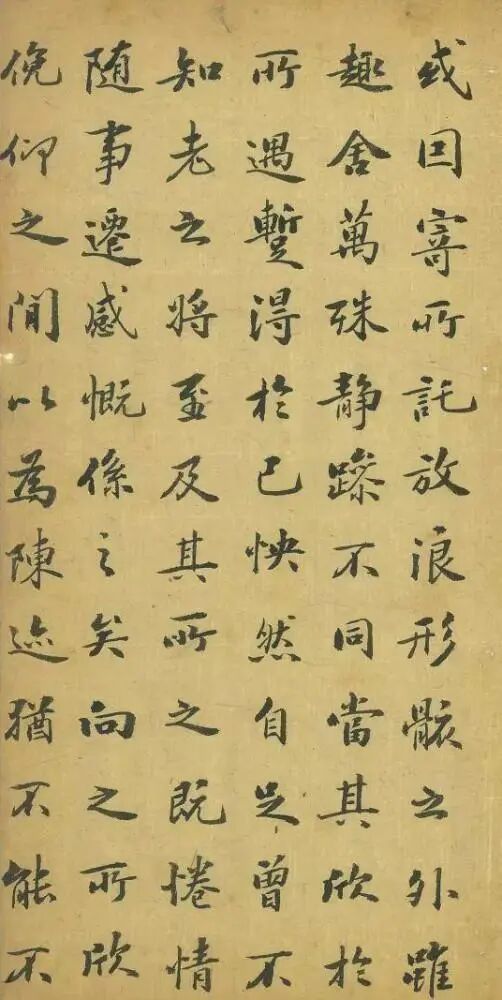 或因寄所託放浪形骸之外雖
趣舍萬殊静躁不同當其欣於
所遇蹔得於己怏然自足曾不
知老之將至及其所之既惓情
随事遷感慨係之矣向之所欣
俛仰之閒以為陳迹猶不能不